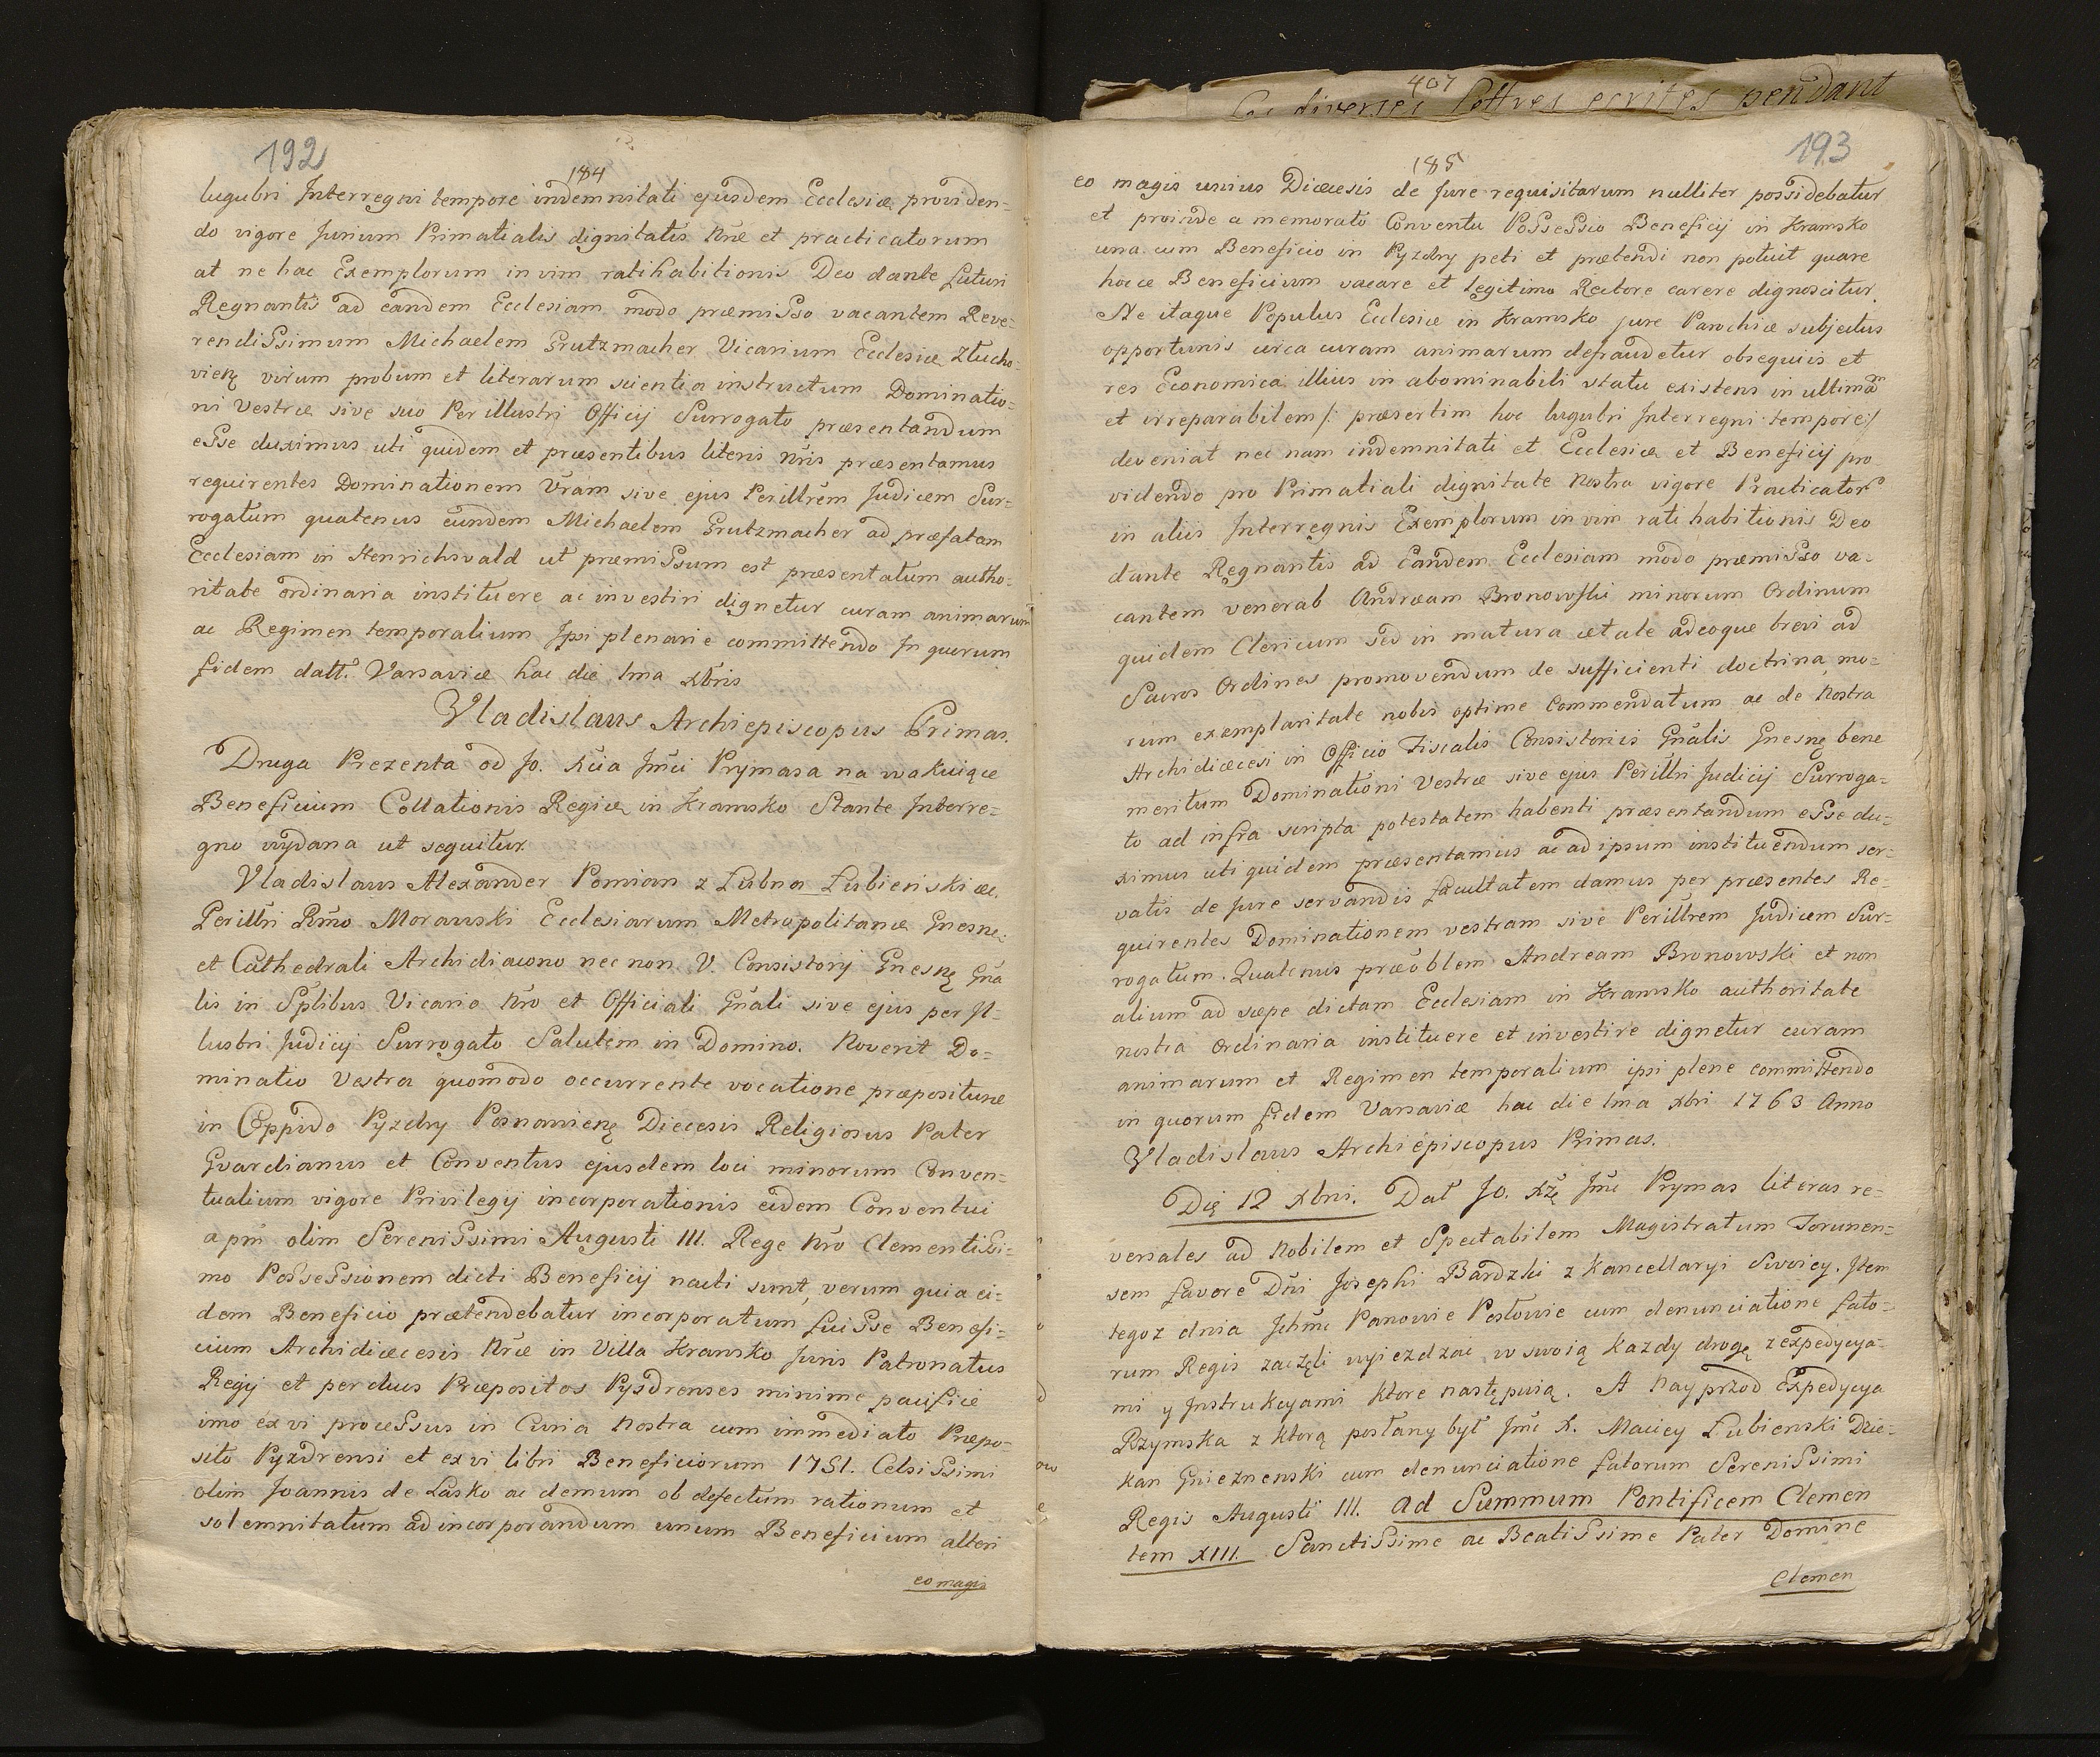 192
184
lugubri Interregni tempore indemnitati ejusdem Ecclesiæ providen=
do vigore Jurium Primatialis dignitatis Nr̃æ et practicatorum
at ne hac Exemplorum in vim ratihabitionis Deo dante futuri
Regnantis ad eandem Ecclesiam modo præmisso vacantem Reve=
rendissimum Michaelem Grutzmacher Vicarium Ecclesiæ Złucho=
vienę virum probum et literarum scientia instructum Dominatio=
ni Vestræ sive suo Perillustri Officij Surrogato præsentandum
esse duximus uti quidem et præsentibus literis Nr̃is præsentamus
requirentes Dominationem Vr̃am sive ejus Perillr̃em Judicem Sur=
rogatum quatenus eundem Michaelem Grutzmacher ad præfatam
Ecclesiam in Henrichsvald ut præmissum est præsentatum autho=
ritate ordinaria instituere ac investiri dignetur curam animarum
ac Regimen temporalium Ipsi plenarie committendo In quorum
fidem datt. Varsaviæ hac die 1ma Xbris
Vladislaus Archiepiscopus Primas.
Druga Prezenta od Jo. Xcia Jm̃ci Prymasa na wakuiące
Beneficium Collationis Regiæ in Kramsko Stante Interre=
gno wydana ut sequitur
Vladislaus Alexander Pomian z Łubna Łubieński &c.
Perillr̃i Rm̃o Morawski Ecclesiarum Metropolitanæ Gnesnę.
et Cathedrali Archidiacono nec non V. Consistorij Gnesnę Gn̄a
lis in Sp̃libus Vicario Nr̃o et Officiali Gn̄ali sive ejus per Il=
lustri Judicij Surrogato Salutem in Domino. Noverit Do=
minatio Vestra quomodo occurrente vocatione præpositurae
in Oppido Pyzdry Posnanienę Diecesis Religiosus Pater
Gvardianus et Conventus ejusdem loci minorum Conven=
tualium vigore Privilegij incorporationis eidem Conventui
a pm̃ olim Serenissimi Augusti III. Rege Nr̃o Clementissi=
mo Possessionem dicti Beneficij nacti sunt, verum quia ei=
dem Beneficio prætendebatur incorporatum fuisse Benefi=
cium Archidiæcesis Nr̃æ in Villa Kramsko Juris Patronatus
Regij et perdius Præpositos Pysdrenses minime pacifice
imo ex vi processus in Curia Nostra cum immediato Præpo=
sito Pyzdrensi et ex vi libri Beneficiorum 1751. Celsissimi
olim Joannis de Łasko ac demum ob defectum rationum et
solemnitatum ad incorporandum unum Beneficium alteri
eo magis
407
Les diverses lettres ecrites pendant
193
185
eo magis unius Diæcesis de Jure requisitarum nulliter possidebatur
et proinde a memorato Conventu Possessio Beneficij in Kramsko
una cum Beneficio in Pyzdry peti et prætendi non potuit quare
hocce Beneficium vacare et legitimo Rectore carere dignoscitur.
Ne itaque Populus Ecclesiæ in Kramsko jure Parochiæ subjectus
opportunis circa curam animarum defraudetur obsequiis et
res Economica illius in abominabili statu existens in ultimam
et irreparabilem /: præsertim hoc lugubri Interregni tempore :/
deveniat nec nam indemnitati et Ecclesiæ et Beneficij pro
videndo pro Primatiali dignitate Nostra vigore Practicator
in aliis Interregnis Exemplorum in vim rati habitionis Deo
dante Regnantis ad Eandem Ecclesiam modo præmisso va=
cantem venerab Andræam Bronowski minorum Ordinum
quidem Clericum sed in matura ætate adeoque brevi ad
Sacros Ordines promovendum de sufficienti doctrina, mo=
rum exemplaritate nobis optime Commendatum ac de Nostra
Archidiæcesi in Officio Fiscalis Consistoriis Gn̄alis Gnesnę bene
meritum Dominationi Vestræ sive ejus Perillri Judicij Surroga=
to ad infra scripta potestatem habenti præsentandum esse du=
ximus uti quidem præsentamus ac ad ipsum instituendum ser=
vatis de Jure servandis facultatem damus per præsentes Re=
quirentes Dominationem vestram sive Perillr̃em Judicem Sur=
rogatum. Quatenus præoblem Andream Bronowski et non
alium ad sæpe dictam Ecclesiam in Kramsko authoritate
nostra Ordinaria instituere et investire dignetur curam
animarum et Regimen temporalium ipsi plene committendo
in quorum fidem Varsaviæ hac die 1ma Xbri 1763 Anno
Vladislaus Archiepiscopus Primas.
Dię 12 Xbri. Dał Jo. Xżę Jm̃ Prymas literas re=
versales ad Nobilem et Spectabilem Magistratum Torunen=
sem favore Dn̄i Josephi Bardzki z Kancellaryi Swoiey. Item
tegoz dnia Jchm̃ Panowie Posłowie cum denunciatione fato=
rum Regis zaczęli wyiezdzac w swoią Kazdy drogę z expedycya=
mi y Instrukcyami Ktore następuią. A Nayprzod Expedycya
Rzymska z Ktorą posłany był Jm̃ X. Maciey Łubienski Dzie=
kan Gnieznenski cum denunciatione fatorum Serenissimi
Regis Augusti III. ad Summum Pontificem Clemen
tem XIII. Sanctissime ac Beatissime Pater Domine
Clemen